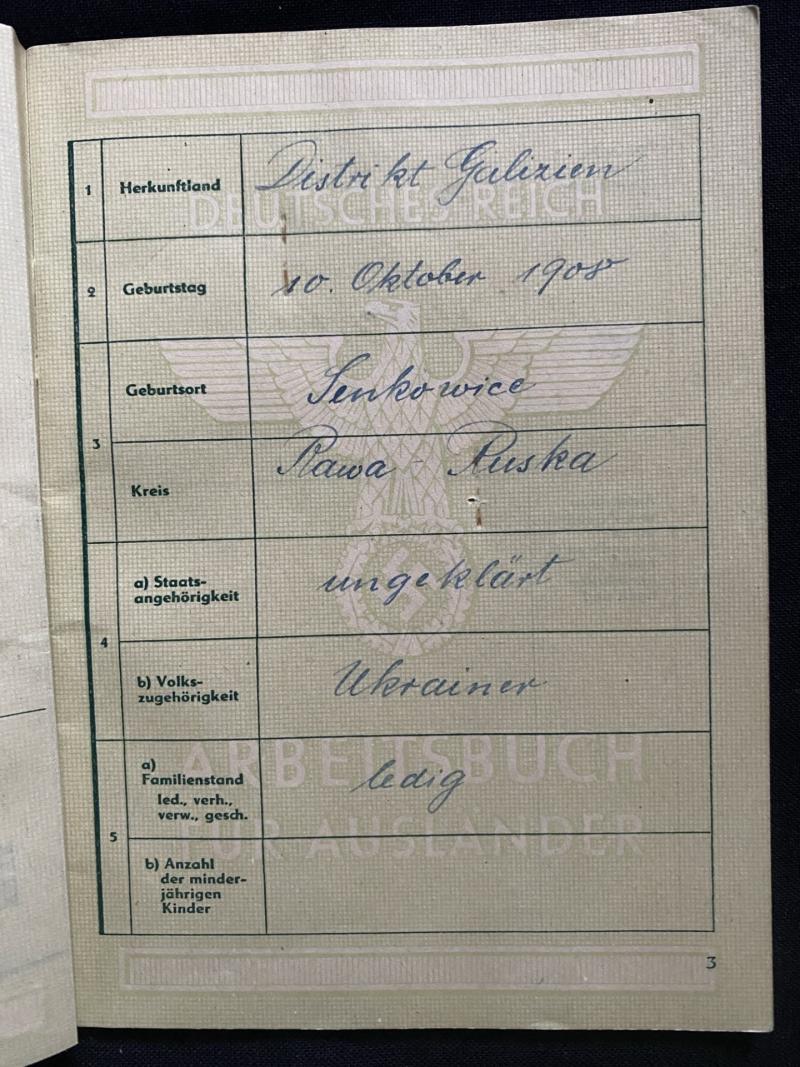 1 Herkunftland Distrikt Galizien
DEUTSCHES REICH
2 Geburtstag 10. Oktober 1908
3
Geburtsort Senkowice
Kreis Rawa - Ruska
4
a) Staats-
angehörigkeit ungeklärt
b) Volks-
zugehörigkeit Ukrainer
ARBEITSBUCH
FÜR AUSLÄNDER
5
a)
Familienstand ledig
led., verh.,
verw., gesch.
b) Anzahl
der minder-
jährigen
Kinder
3